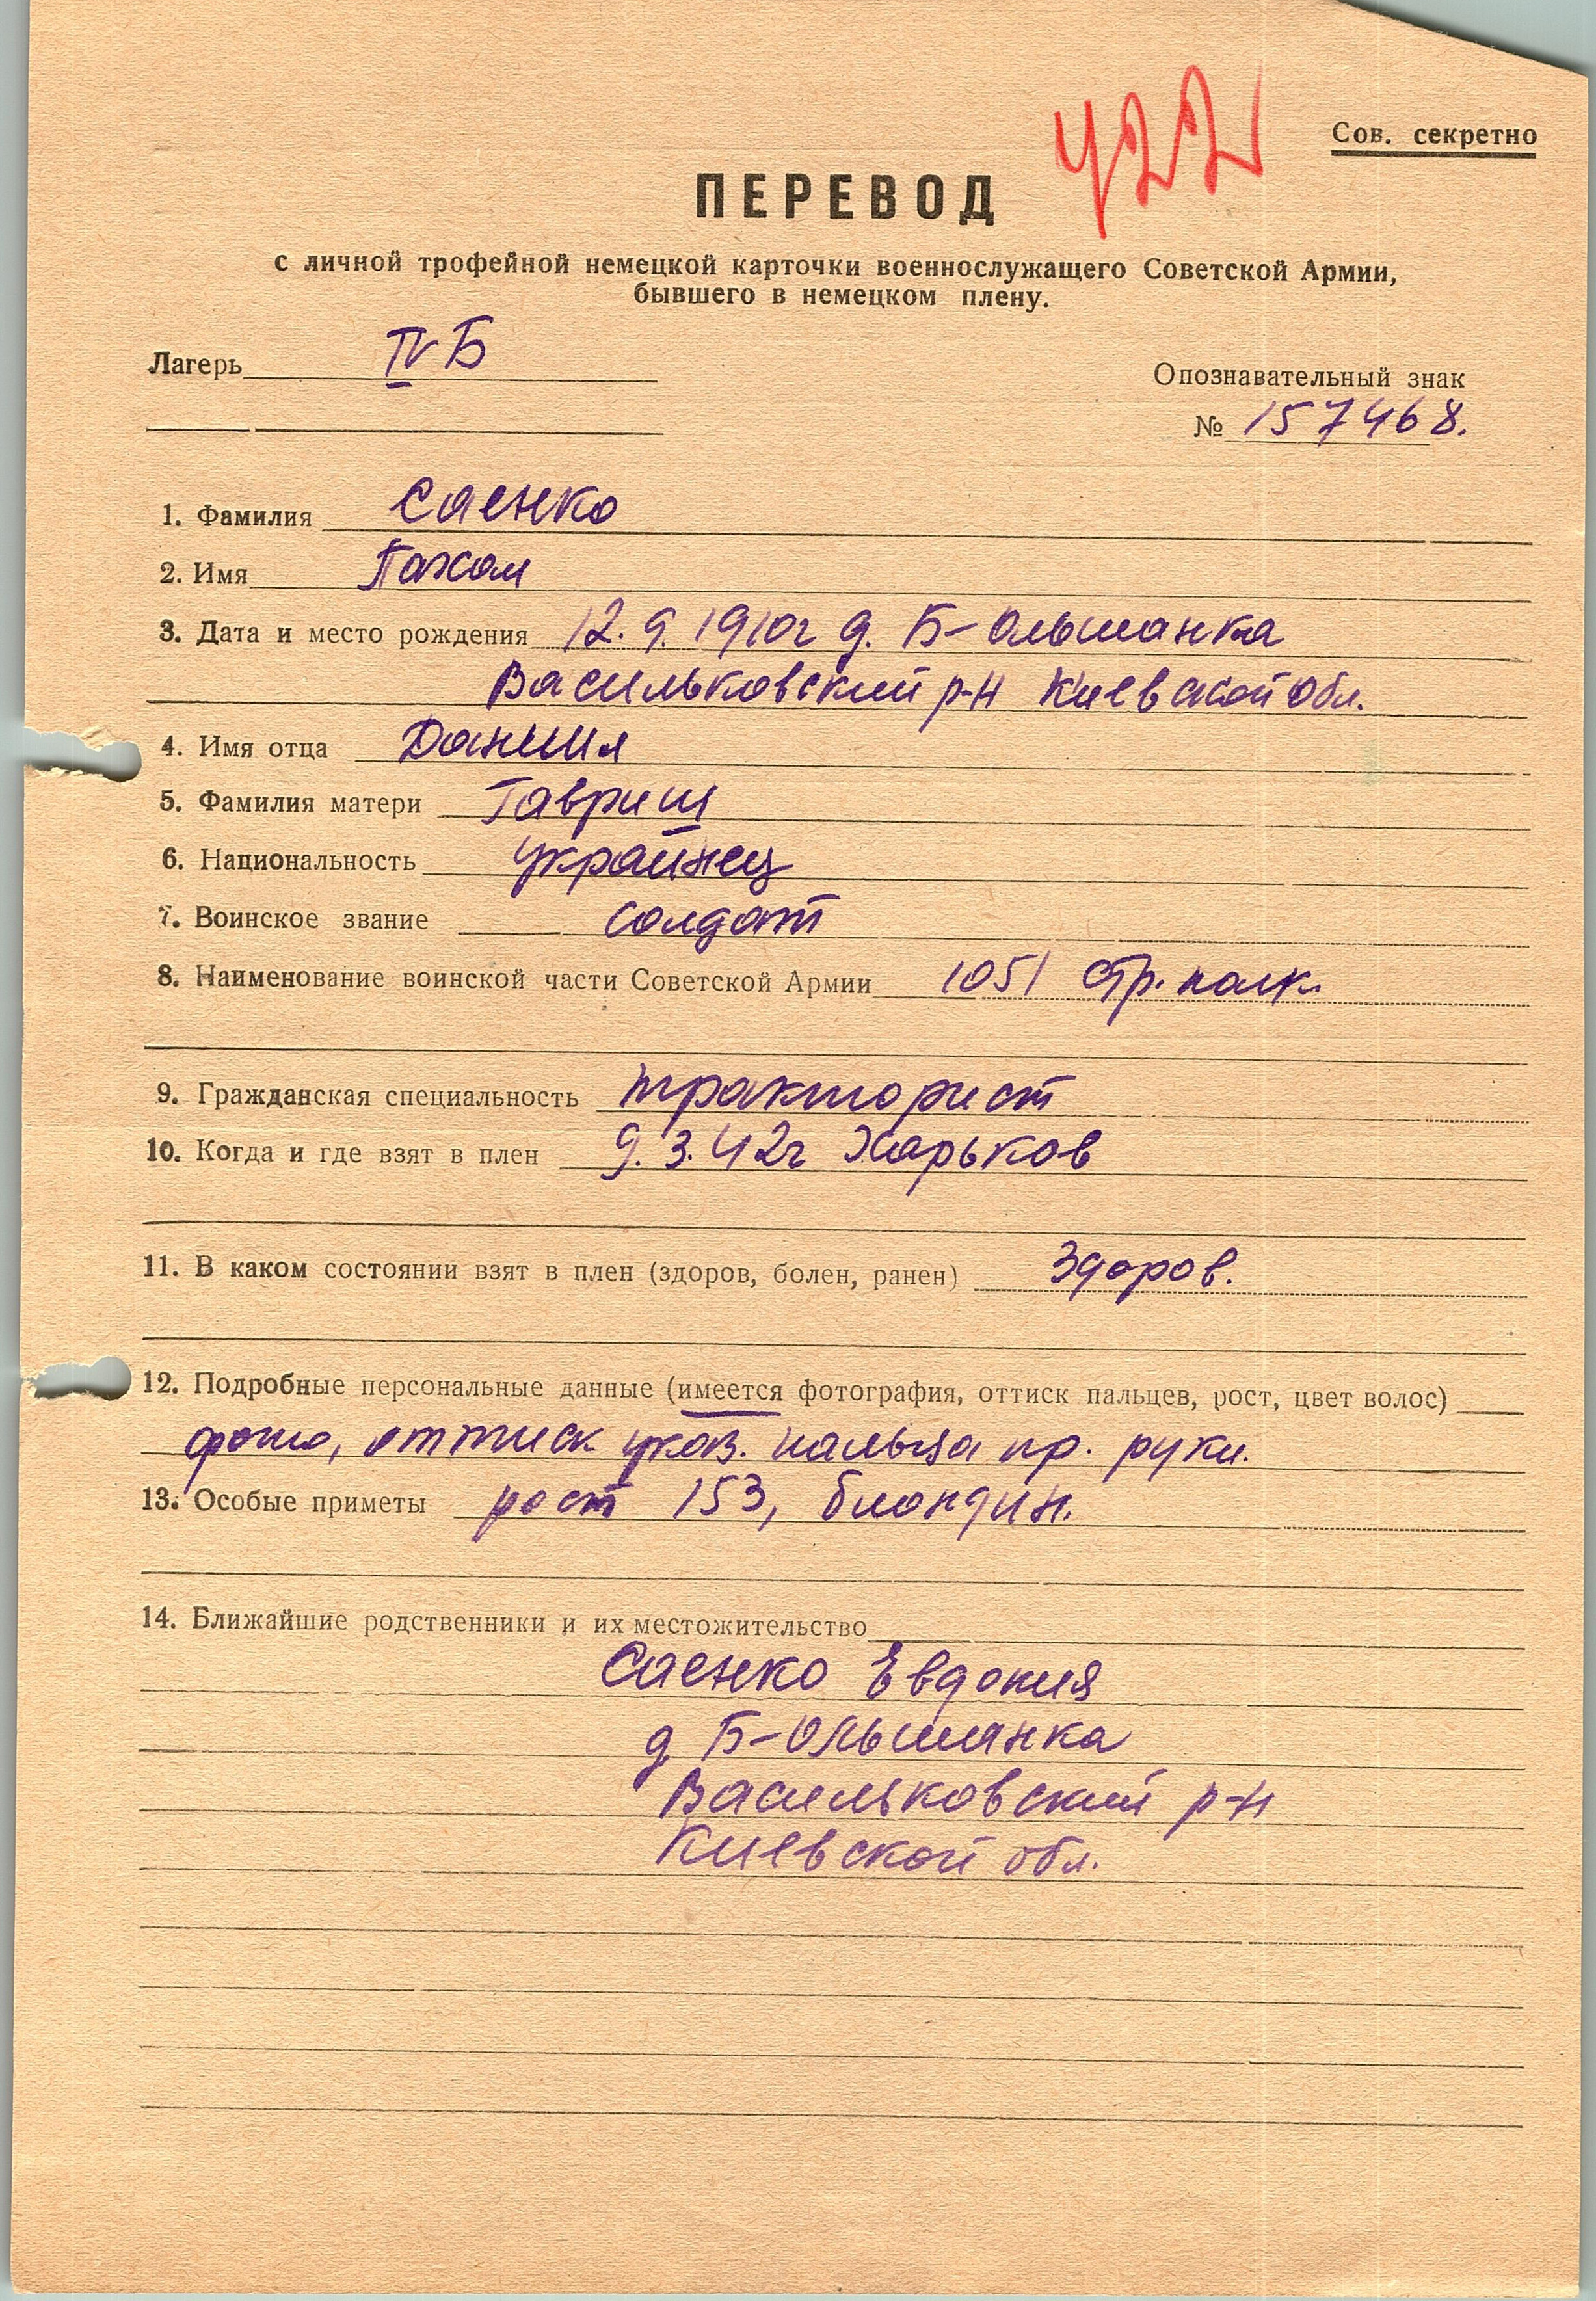 422
Сов. секретно
ПЕРЕВОД
с личной трофейной немецкой карточки военнослужащего Советской Армии,
бывшего в немецком плену.
Лагерь IV Б
Опознавательный знак
№ 157468.
1. Фамилия Саенко
2. Имя Пахом
3. Дата и место рождения 12.9.1910г д. Б-Ольшанка
Васильковский р-н Киевской обл.
4. Имя отца Даниил
5. Фамилия матери Гавриш
6. Национальность украинец
7. Воинское звание солдат
8. Наименование воинской части Советской Армии 1051 стр. полк.
9. Гражданская специальность тракторист
10. Когда и где взят в плен 9.3.42г Харьков
11. В каком состоянии взят в плен (здоров, болен, ранен) здоров.
12. Подробные персональные данные (имеется фотография, оттиск пальцев, рост, цвет волос)
фото, оттиск указ. пальца пр. руки.
13. Особые приметы рост 153, блондин.
14. Ближайшие родственники и их местожительство
Саенко Евдокия
д Б-Ольшанка
Васильковский р-н
Киевской обл.